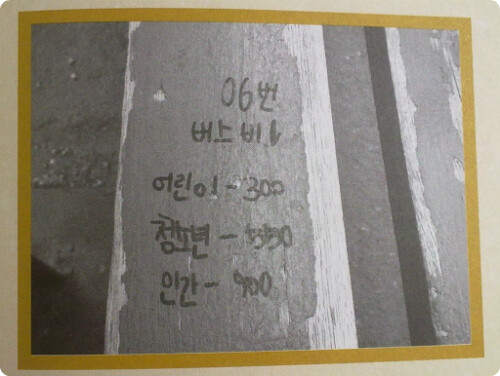 06번
버스비
어린이 - 300
청소년 - 550
인간 - 900